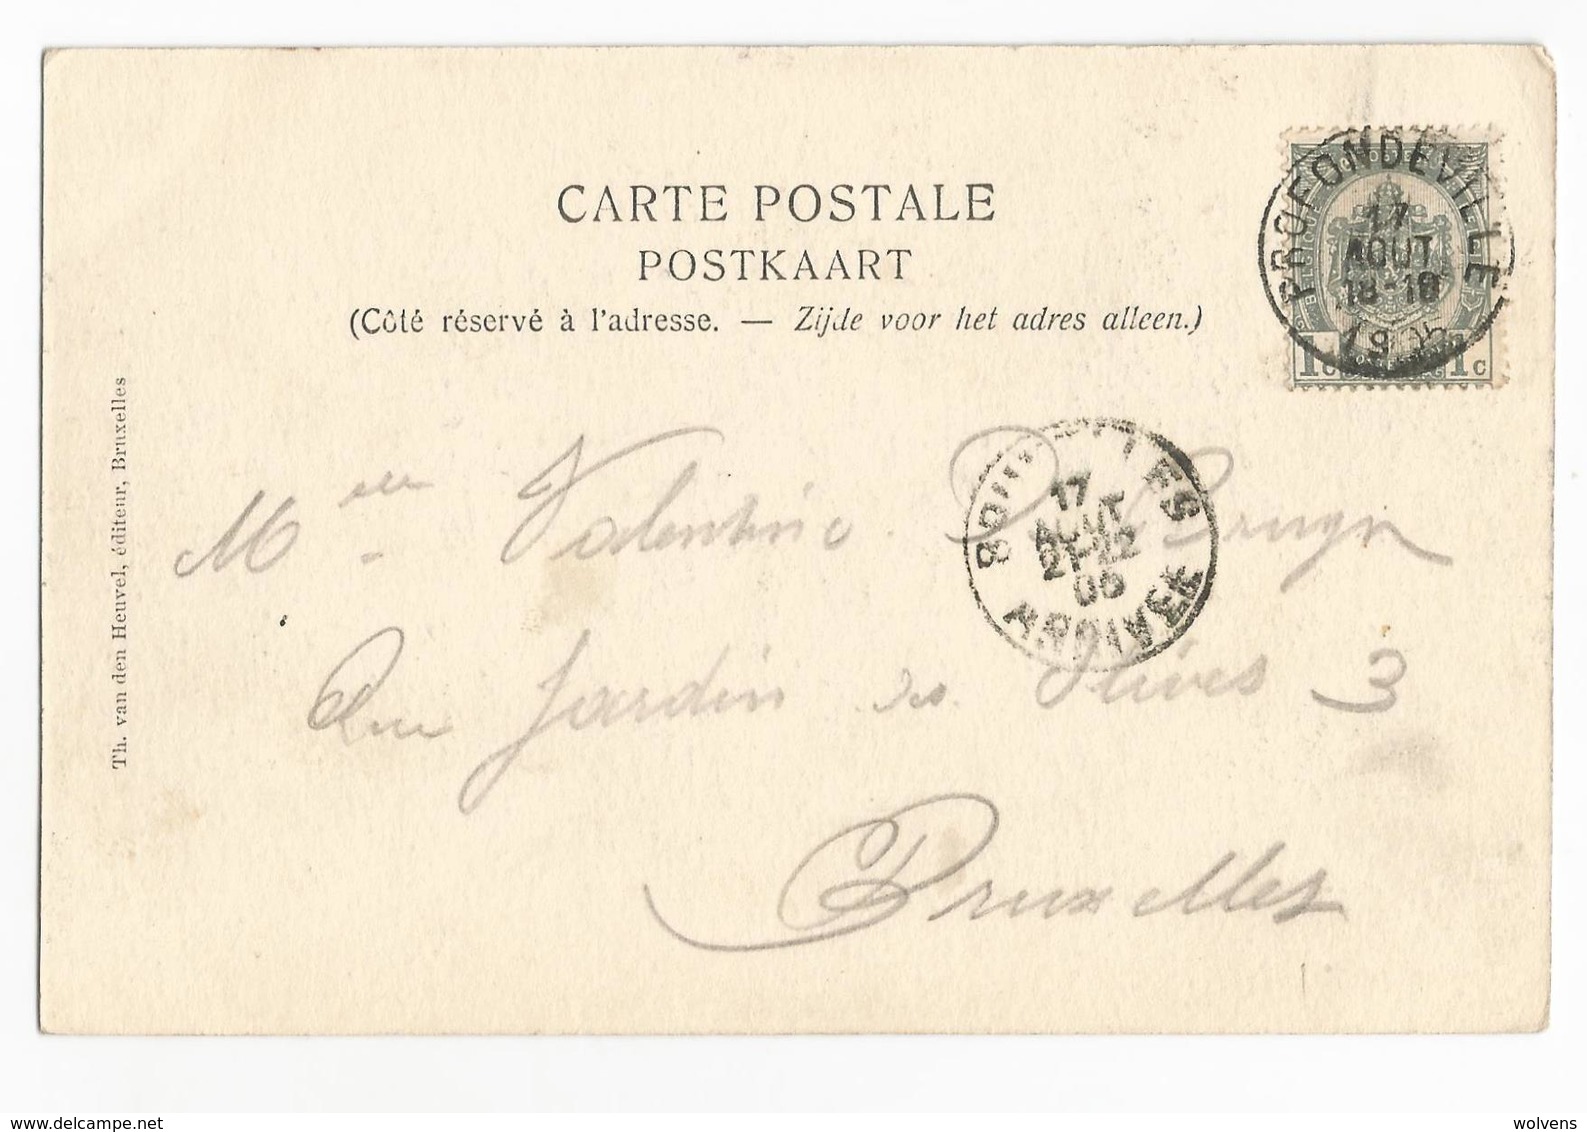 CARTE POSTALE
POSTKAART
(Côté réservé à l'adresse. — Zijde voor het adres alleen.)
PROFONDEVILLE
17
AOUT
1905
1c 1c
BRUXELLES
17
AOUT
21-22
05
ARRIVÉE
Melle Valentine De Bruyn
Rue Jardin des Olives 3
Bruxelles
Th. van den Heuvel, éditeur, Bruxelles
www.delcampe.net
wolvens